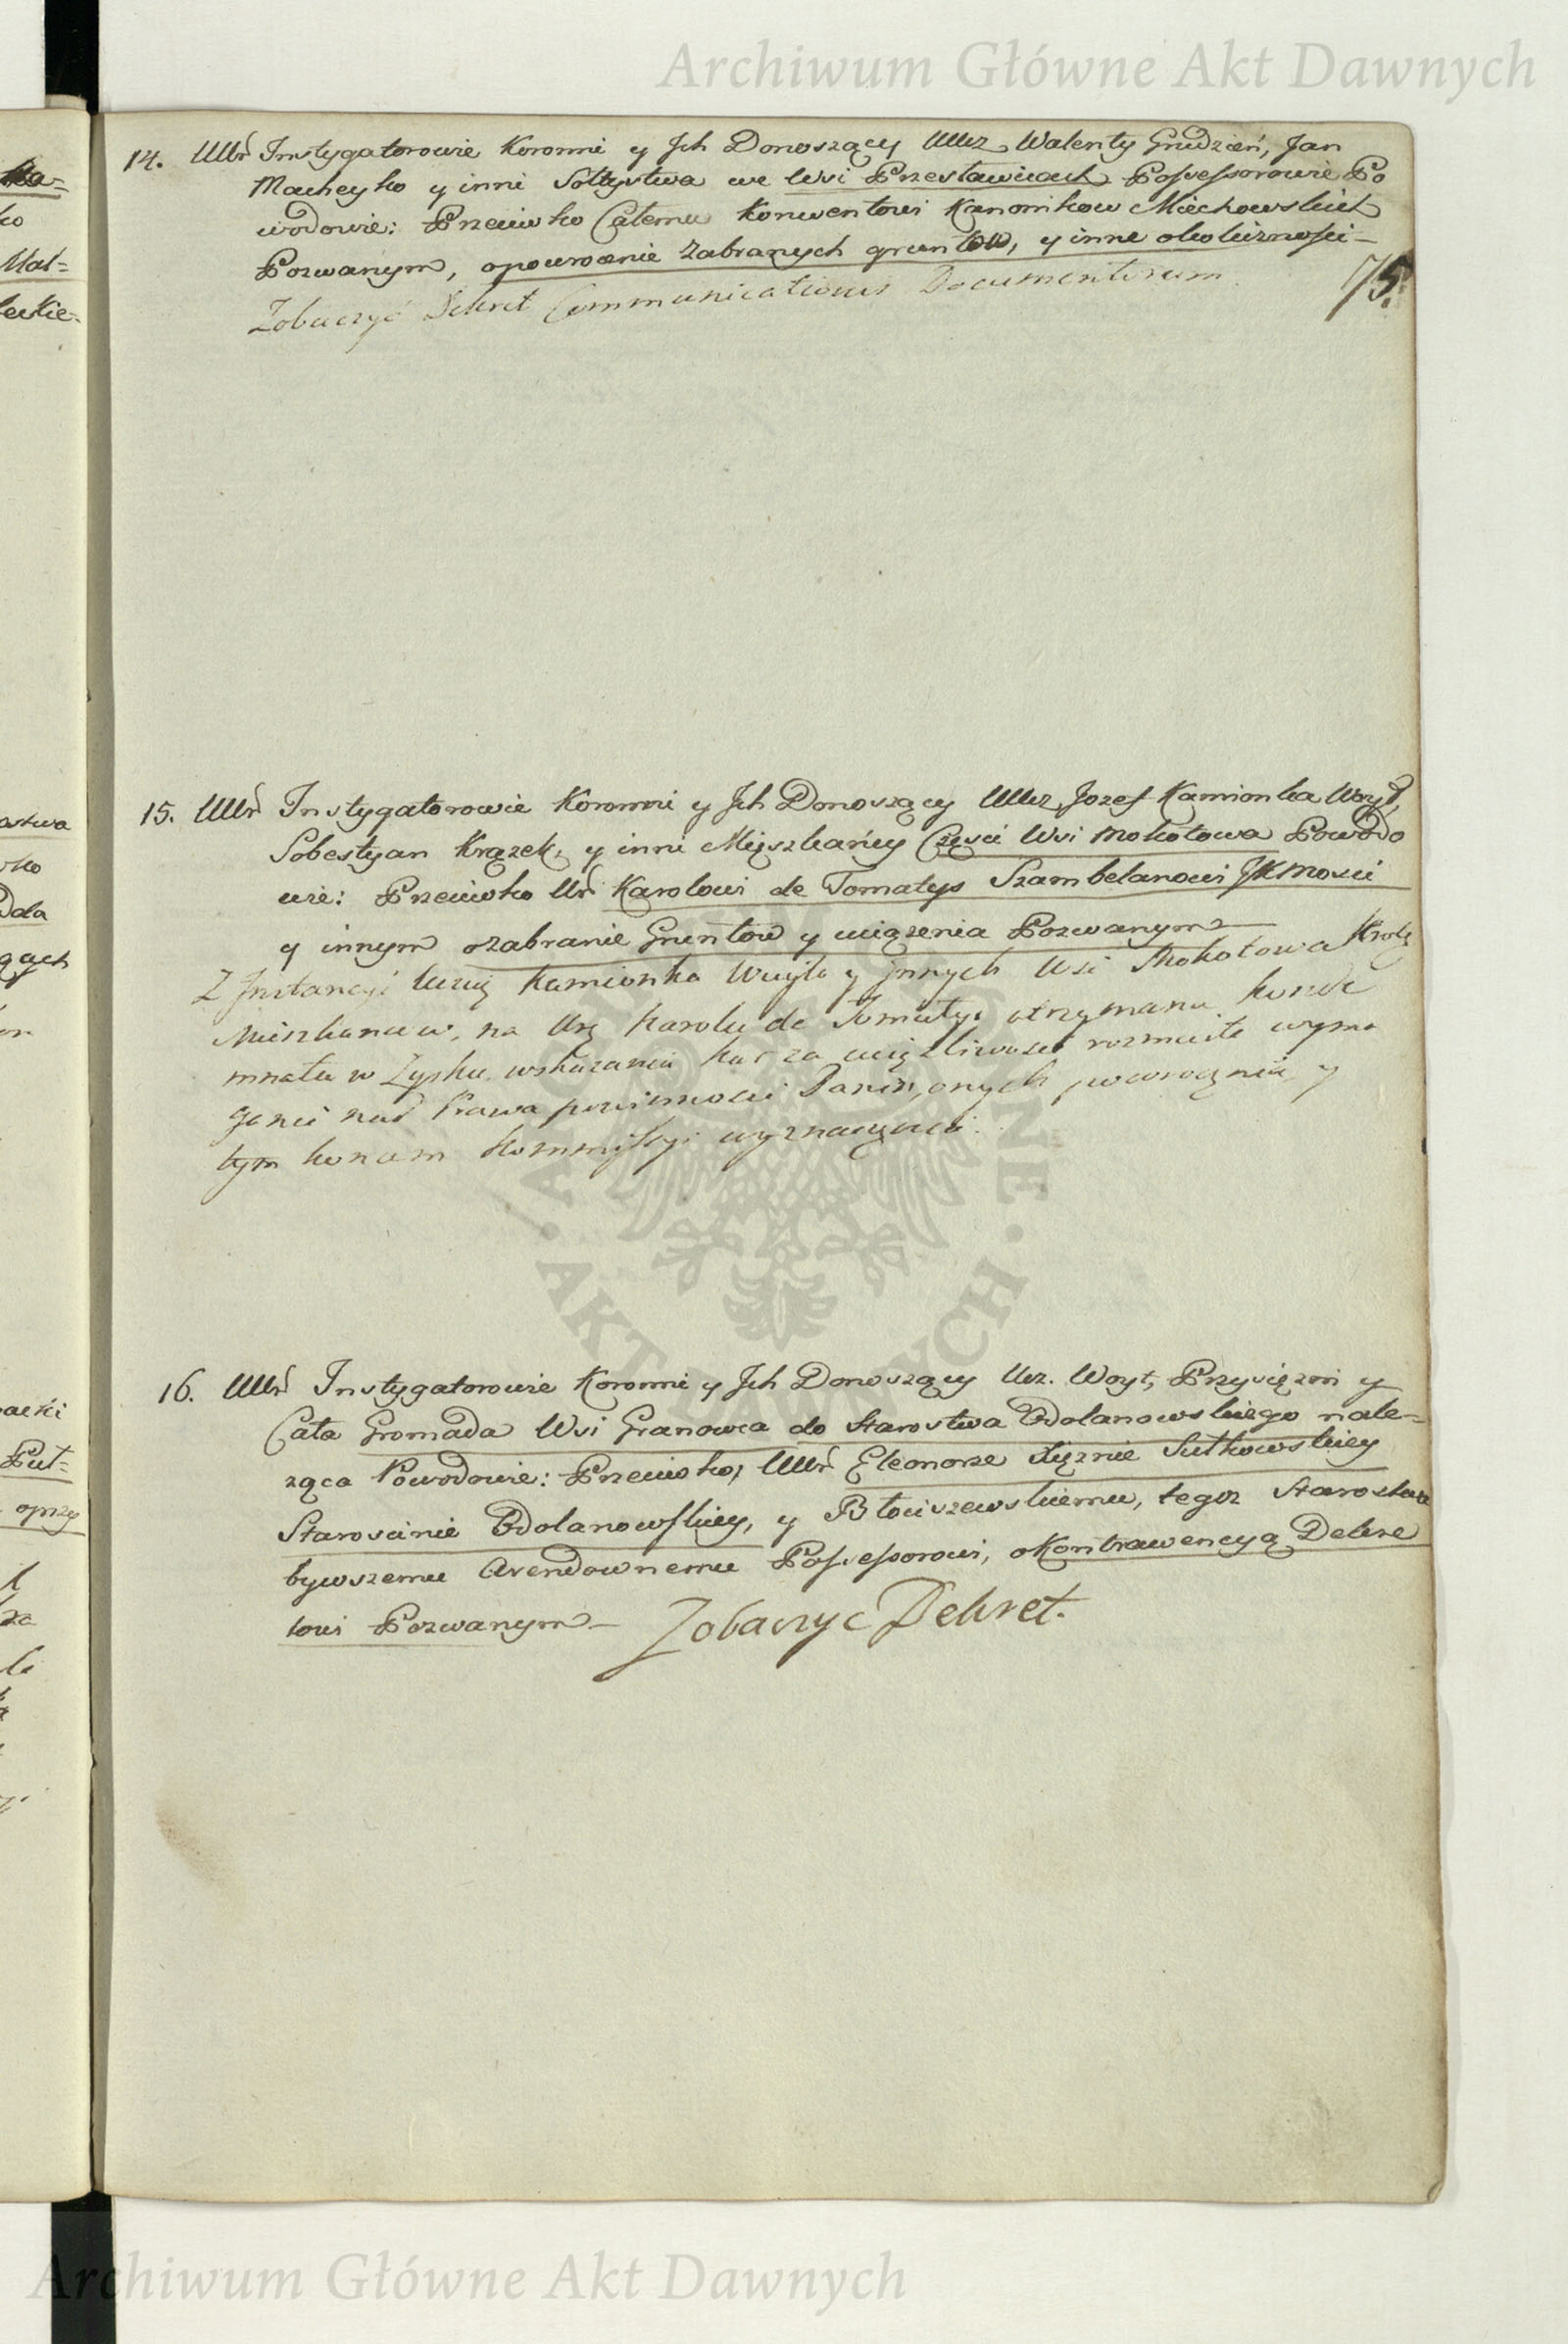 Archiwum Główne Akt Dawnych
75.
14. UUr Instygatorowie Koronni y Jch Donoszący UUcz. Walenty Grudzień, Jan
Macheyko y inni Sołtystwa we Wsi Przesławicach Possessorowie Po
wodowie: Przeciwko Całemu Konwentowi Kanonikow Miechowskich
Pozwanym, o powrocenie zabranych gruntow, y inne okoliczności –
Zobaczyć Dekret Communicationis Documentorum
15. UUr Instygatorowie Koronni y Jch Donoszący UUcz. Jozef Kamionka Woyt,
Sobestyan Krązek, y inni Mięszkańcy Części Wsi Mokotowa Powodo
wie: Przeciwko Ur Karolowi de Tomatys Szambelanowi JKMosci
y innym o zabranie Gruntow y uciązenia Pozwanym –
Z Jnstancyi Kamionka Woyta y Jnnych Wsi Mokotowa
Mieszkancow, na Urę Karolu de Tomatys otrzymana Konde
mnata w Zysku wskazania kar za uciązliwosci rozmaite wyma
gania nad Prawa powinnosci Danin, onych powrocenia y
tym koncem Kommissyi wyznaczenia.
16. UUr Instygatorowie Koronni y Jch Donoszący Ucz. Woyt, Przysięzni y
Cała Gromada Wsi Granowca do Starostwa Odolanowskiego nale=
ząca Powodowie: Przeciwko, UUr Eleonorze Xięznie Sułkowskiey
Starościnie Odolanowskiey, y Błociszewskiemu, tegoz Starostwa
bywszemu Arendownemu Possessorowi, o Kontrawencyą Dekre
towi Pozwanym – Zobaczyc Dekret.
Archiwum Główne Akt Dawnych